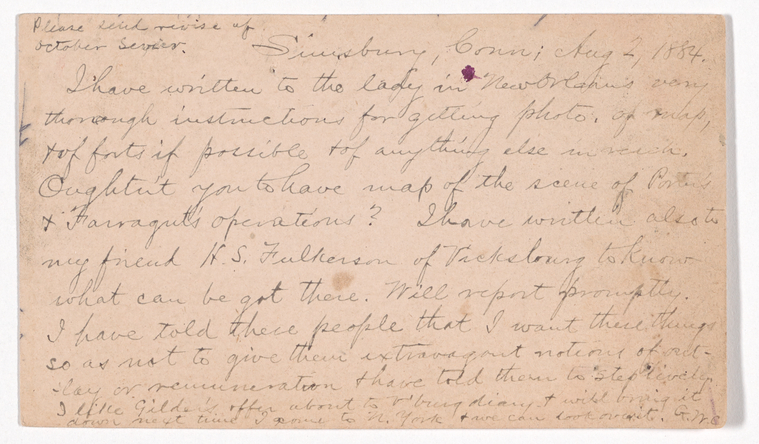 Please send revise of
October Sevier.
Simsbury, Conn; Aug 2, 1884.
I have written to the lady in New Orleans very
thorough instructions for getting photo. of map,
& of forts if possible & of anything else in reach.
Oughtnt you to have map of the scene of Porter's
& Farragut's operations? I have written also to
my friend H. S. Fulkerson of Vicksburg to know
what can be got there. Will report promptly.
I have told these people that I want these things
so as not to give them extravagant notions of out-
lay or remuneration & have told them to step lively.
I like Gilder's offer about to V'burg diary & will bring it
down next time I come to N. York & we can look over it. G.W.C